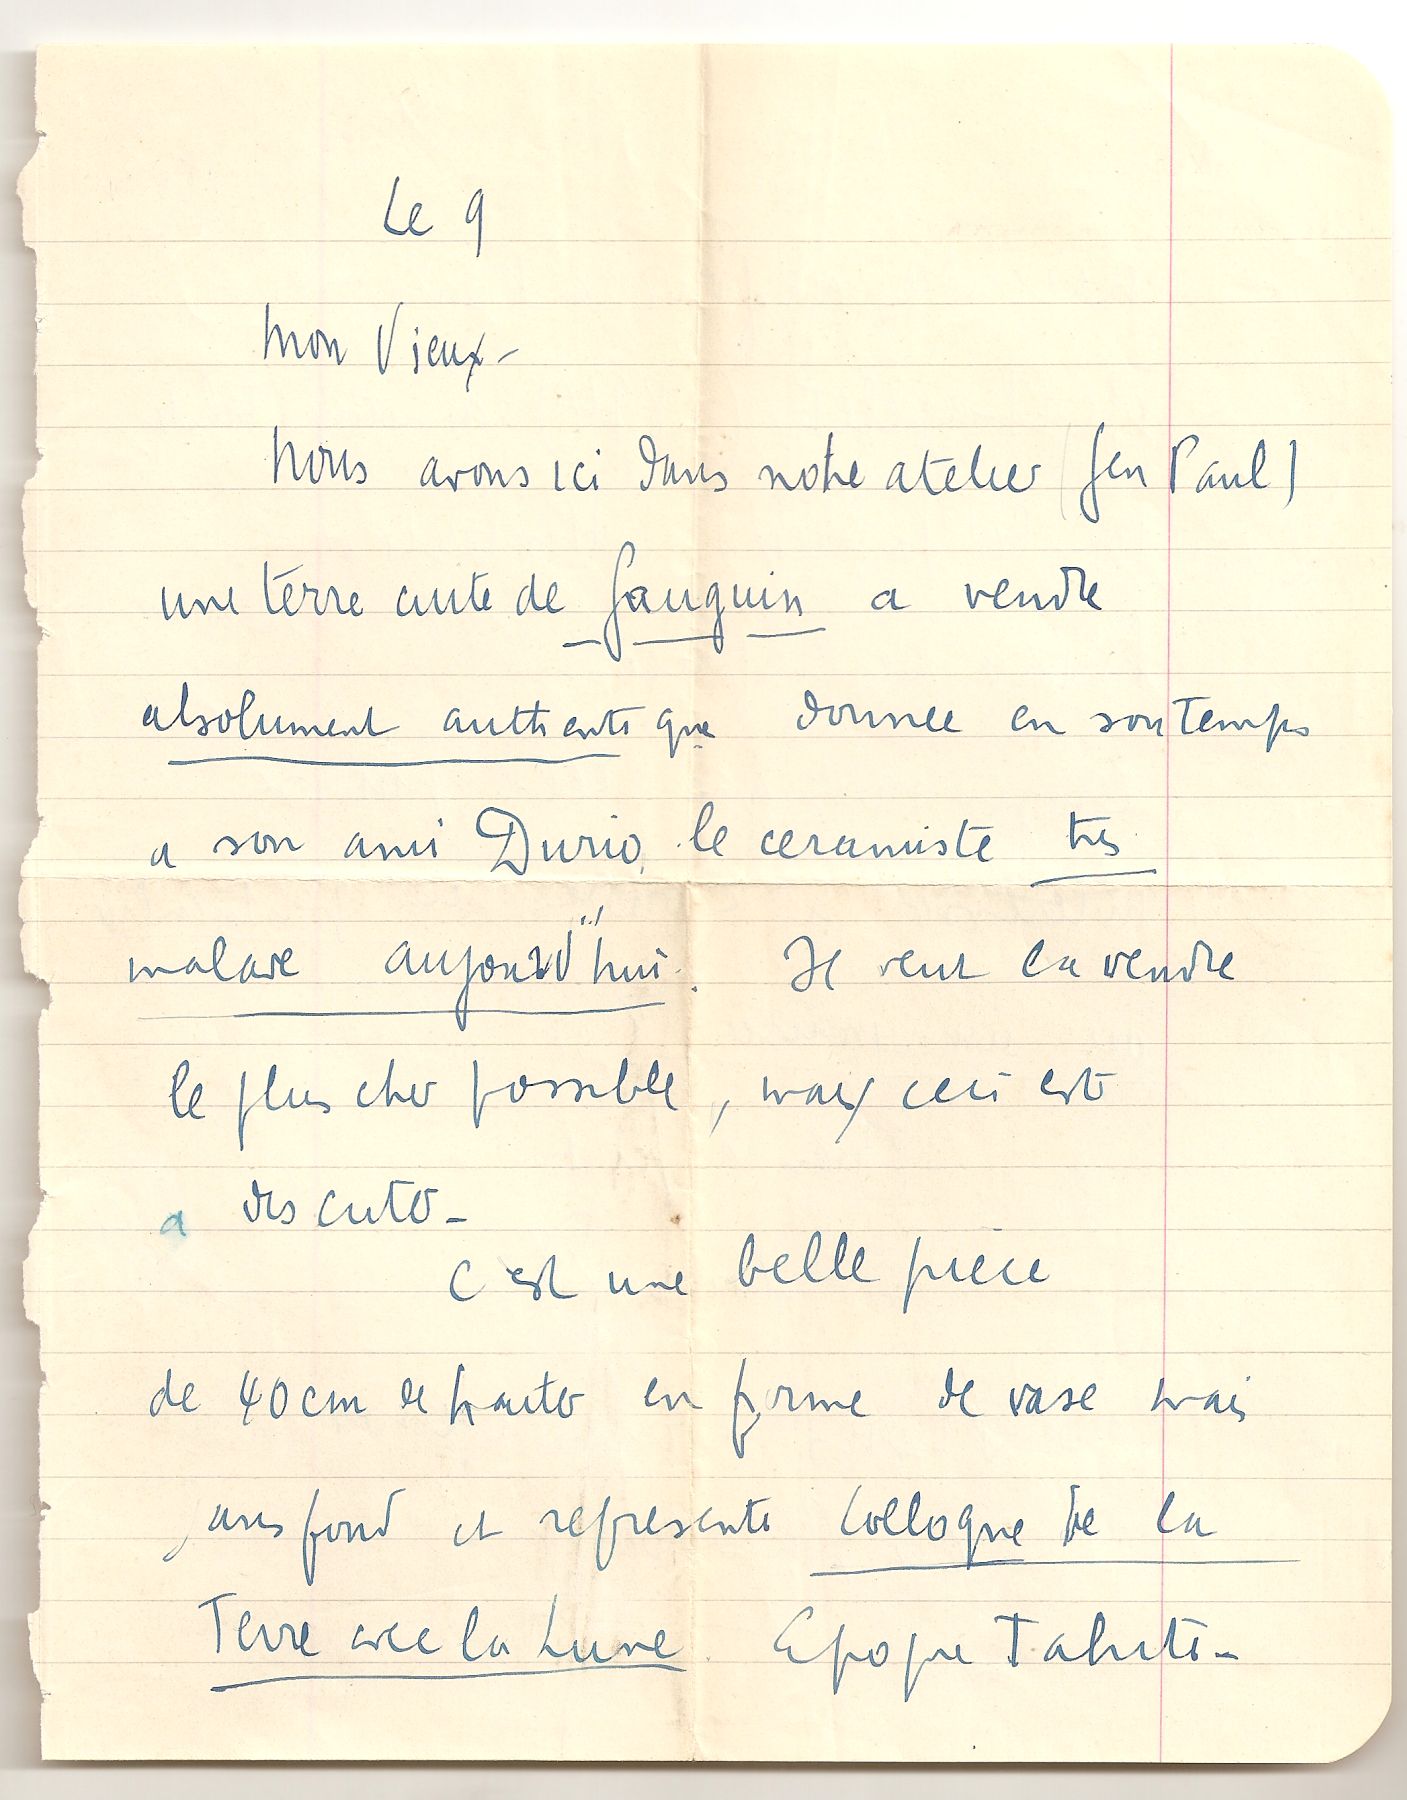 Le 9
Mon Vieux -
Nous avons ici dans notre atelier (Gen Paul)
une terre cuite de Gauguin a vendre
absolument authentique donnee en son temps
a son ami Durio, le ceramiste tres
malade aujourd'hui. Il veut la vendre
le plus cher possible, mais ceci est
a discuter -
C'est une belle piece
de 40 cm de hauter en forme de vase mais
sans fond et represente Colloque de la
Terre avec la Lune. Epoque Tahiti -